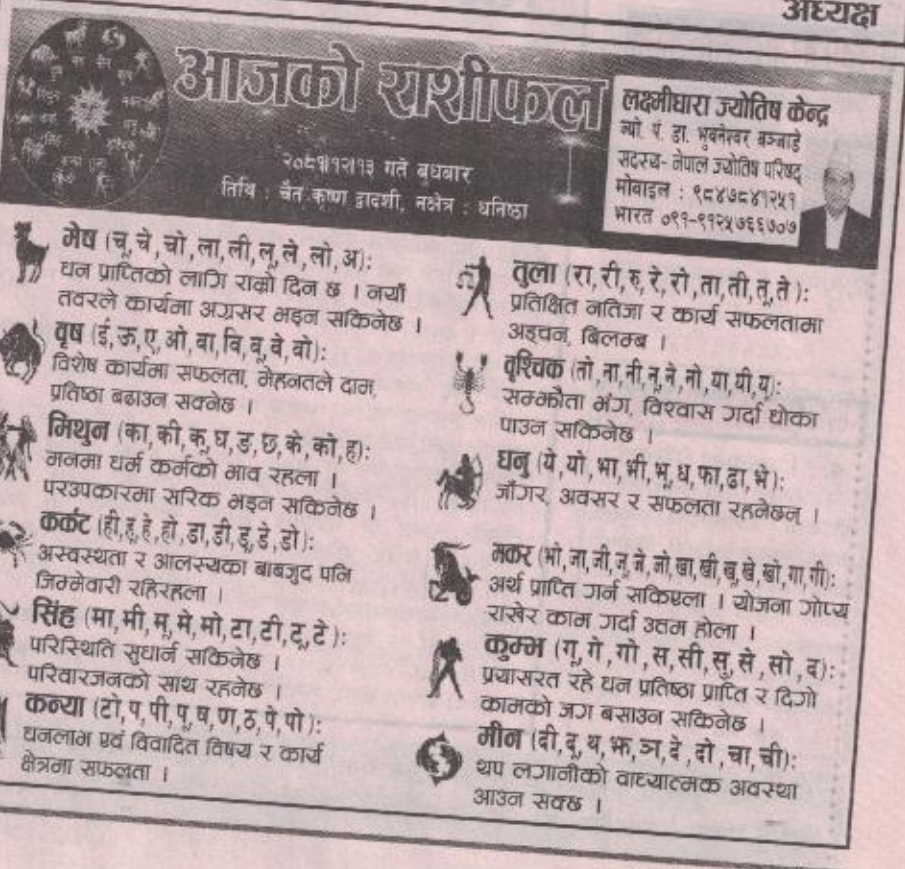 अध्यक्ष
आजको राशीफल
२०८१।१२।१३ गते बुधबार
तिथि : चैत कृष्ण द्वादशी, नक्षेत्र : धनिष्ठा
लक्ष्मीधारा ज्योतिष केन्द्र
ज्यो. पं. डा. भुवनेश्वर बञ्जाडे
सदस्य- नेपाल ज्योतिष परिषद्
मोवाइल : ९८४७८४१२५१
भारत ०९१-९१२५७६६७०७
मेष (चू,चे,चो,ला,ली,लू,ले,लो,अ):
धन प्राप्तिको लागि राम्रो दिन छ । नयाँ
तवरले कार्यमा अग्रसर भइन सकिनेछ ।
वृष (ई,ऊ,ए,ओ,वा,वि,वू,वे,वो):
विशेष कार्यमा सफलता, मेहनतले दाम,
प्रतिष्ठा बढाउन सक्नेछ ।
मिथुन (का,की,कू,घ,ङ,छ,के,को,ह):
मनमा धर्म कर्मको भाव रहला ।
परउपकारमा सरिक भइन सकिनेछ ।
कर्कट (ही,हू,हे,हो,डा,डी,डू,डे,डो):
अस्वस्थता र आलस्यका बाबजुद पनि
जिम्मेवारी रहिरहला ।
सिंह (मा,मी,मू,मे,मो,टा,टी,टू,टे):
परिस्थिति सुधार्न सकिनेछ ।
परिवारजनको साथ रहनेछ ।
कन्या (टो,प,पी,पू,ष,ण,ठ,पे,पो):
धनलाभ एवं विवादित विषय र कार्य
क्षेत्रमा सफलता ।
तुला (रा,री,रु,रे,रो,ता,ती,तू,ते):
प्रतिक्षित नतिजा र कार्य सफलतामा
अड्चन, बिलम्ब ।
वृश्चिक (तो,ना,नी,नू,ने,नो,या,यी,य):
सम्झौता भंग, विश्वास गर्दा धोका
पाउन सकिनेछ ।
धनु (ये,यो,भा,भी,भू,ध,फा,ढा,भे):
जाँगर, अवसर र सफलता रहनेछन् ।
मकर (भो,जा,जी,जू,जे,जो,खा,खी,खू,खे,खो,गा,गी):
अर्थ प्राप्ति गर्न सकिएला । योजना गोप्य
राखेर काम गर्दा उत्तम होला ।
कुम्भ (गू,गे,गो,स,सी,सु,से,सो,द):
प्रयासरत रहे धन प्रतिष्ठा प्राप्ति र दिगो
कामको जग बसाउन सकिनेछ ।
मीन (दी,दू,थ,झ,ञ,दे,दो,चा,ची):
थप लगानीको वाध्यात्मक अवस्था
आउन सक्छ ।